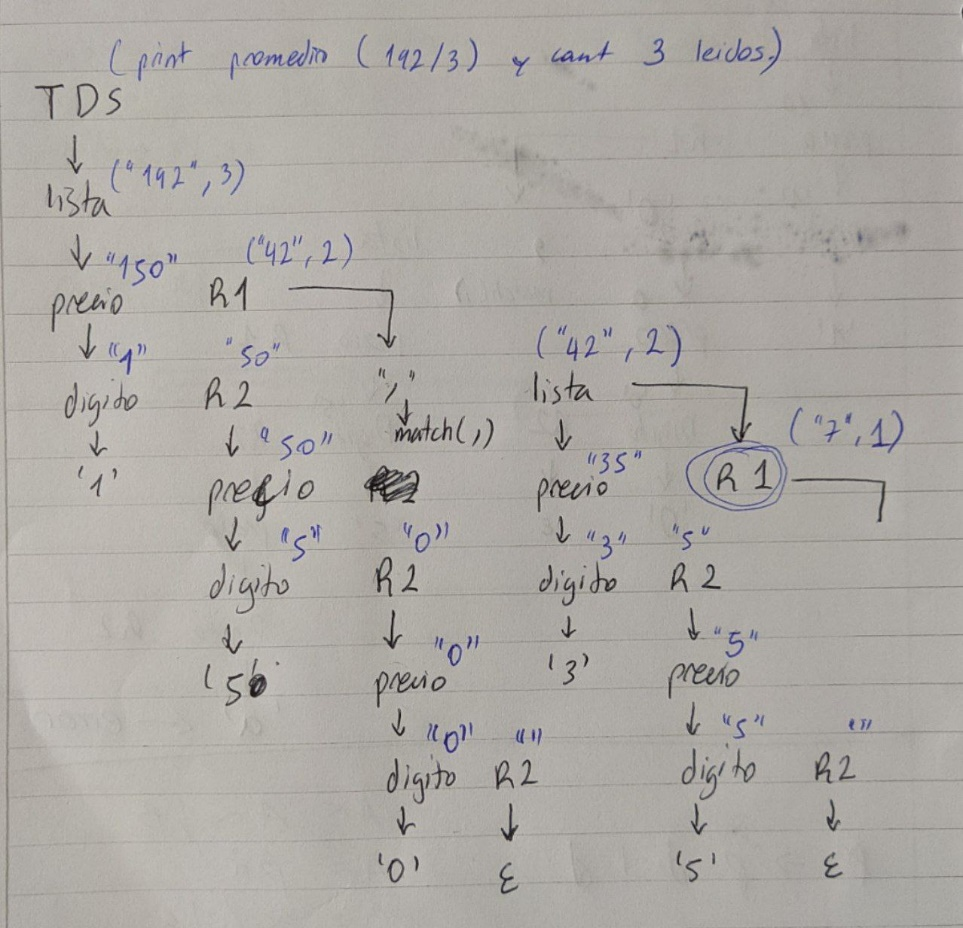 (print promedio (192/3) y cant 3 leidos)
TDS
↓ ("192", 3)
lista
↓ "150" ("42", 2)
precio R1
("42", 2)
↓ "1" "50"
digito R2 "," lista
↓ ↓ "50" ↓ match(,) ↓ ("7", 1)
'1' precio "35" R1
precio
↓ "5" "0" ↓ "3" "5"
digito R2 digito R2
↓ ↓ "0" ↓ ↓ "5"
'5' precio '3' precio
↓ "0" "" ↓ "5" ""
digito R2 digito R2
↓ ↓ ↓ ↓
'0' ε '5' ε